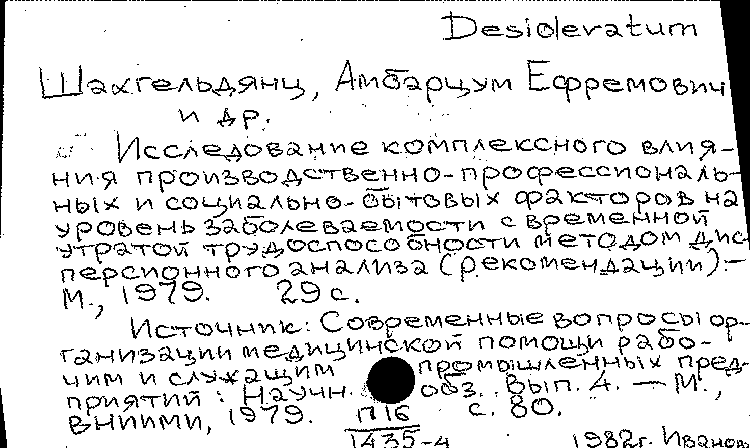 Desideratum
Шахгельдянц, Амбарцум Ефремович
и др.
Исследование комплексного влия-
ния производственно-профессиональ-
ных и социально-бытовых факторов на
уровень заболеваемости с временной
утратой трудоспособности методом дис-
персионного анализа (рекомендации).-
М., 1979. 29 с.
Источник: Современные вопросы ор-
ганизации медицинской помощи рабо-
чим и служащим промышленных пред-
приятий: Научн. обз. Вып. 4. — М.,
ВНИИМИ, 1979. П16 с. 80.
1435-4 1982г. Иванов